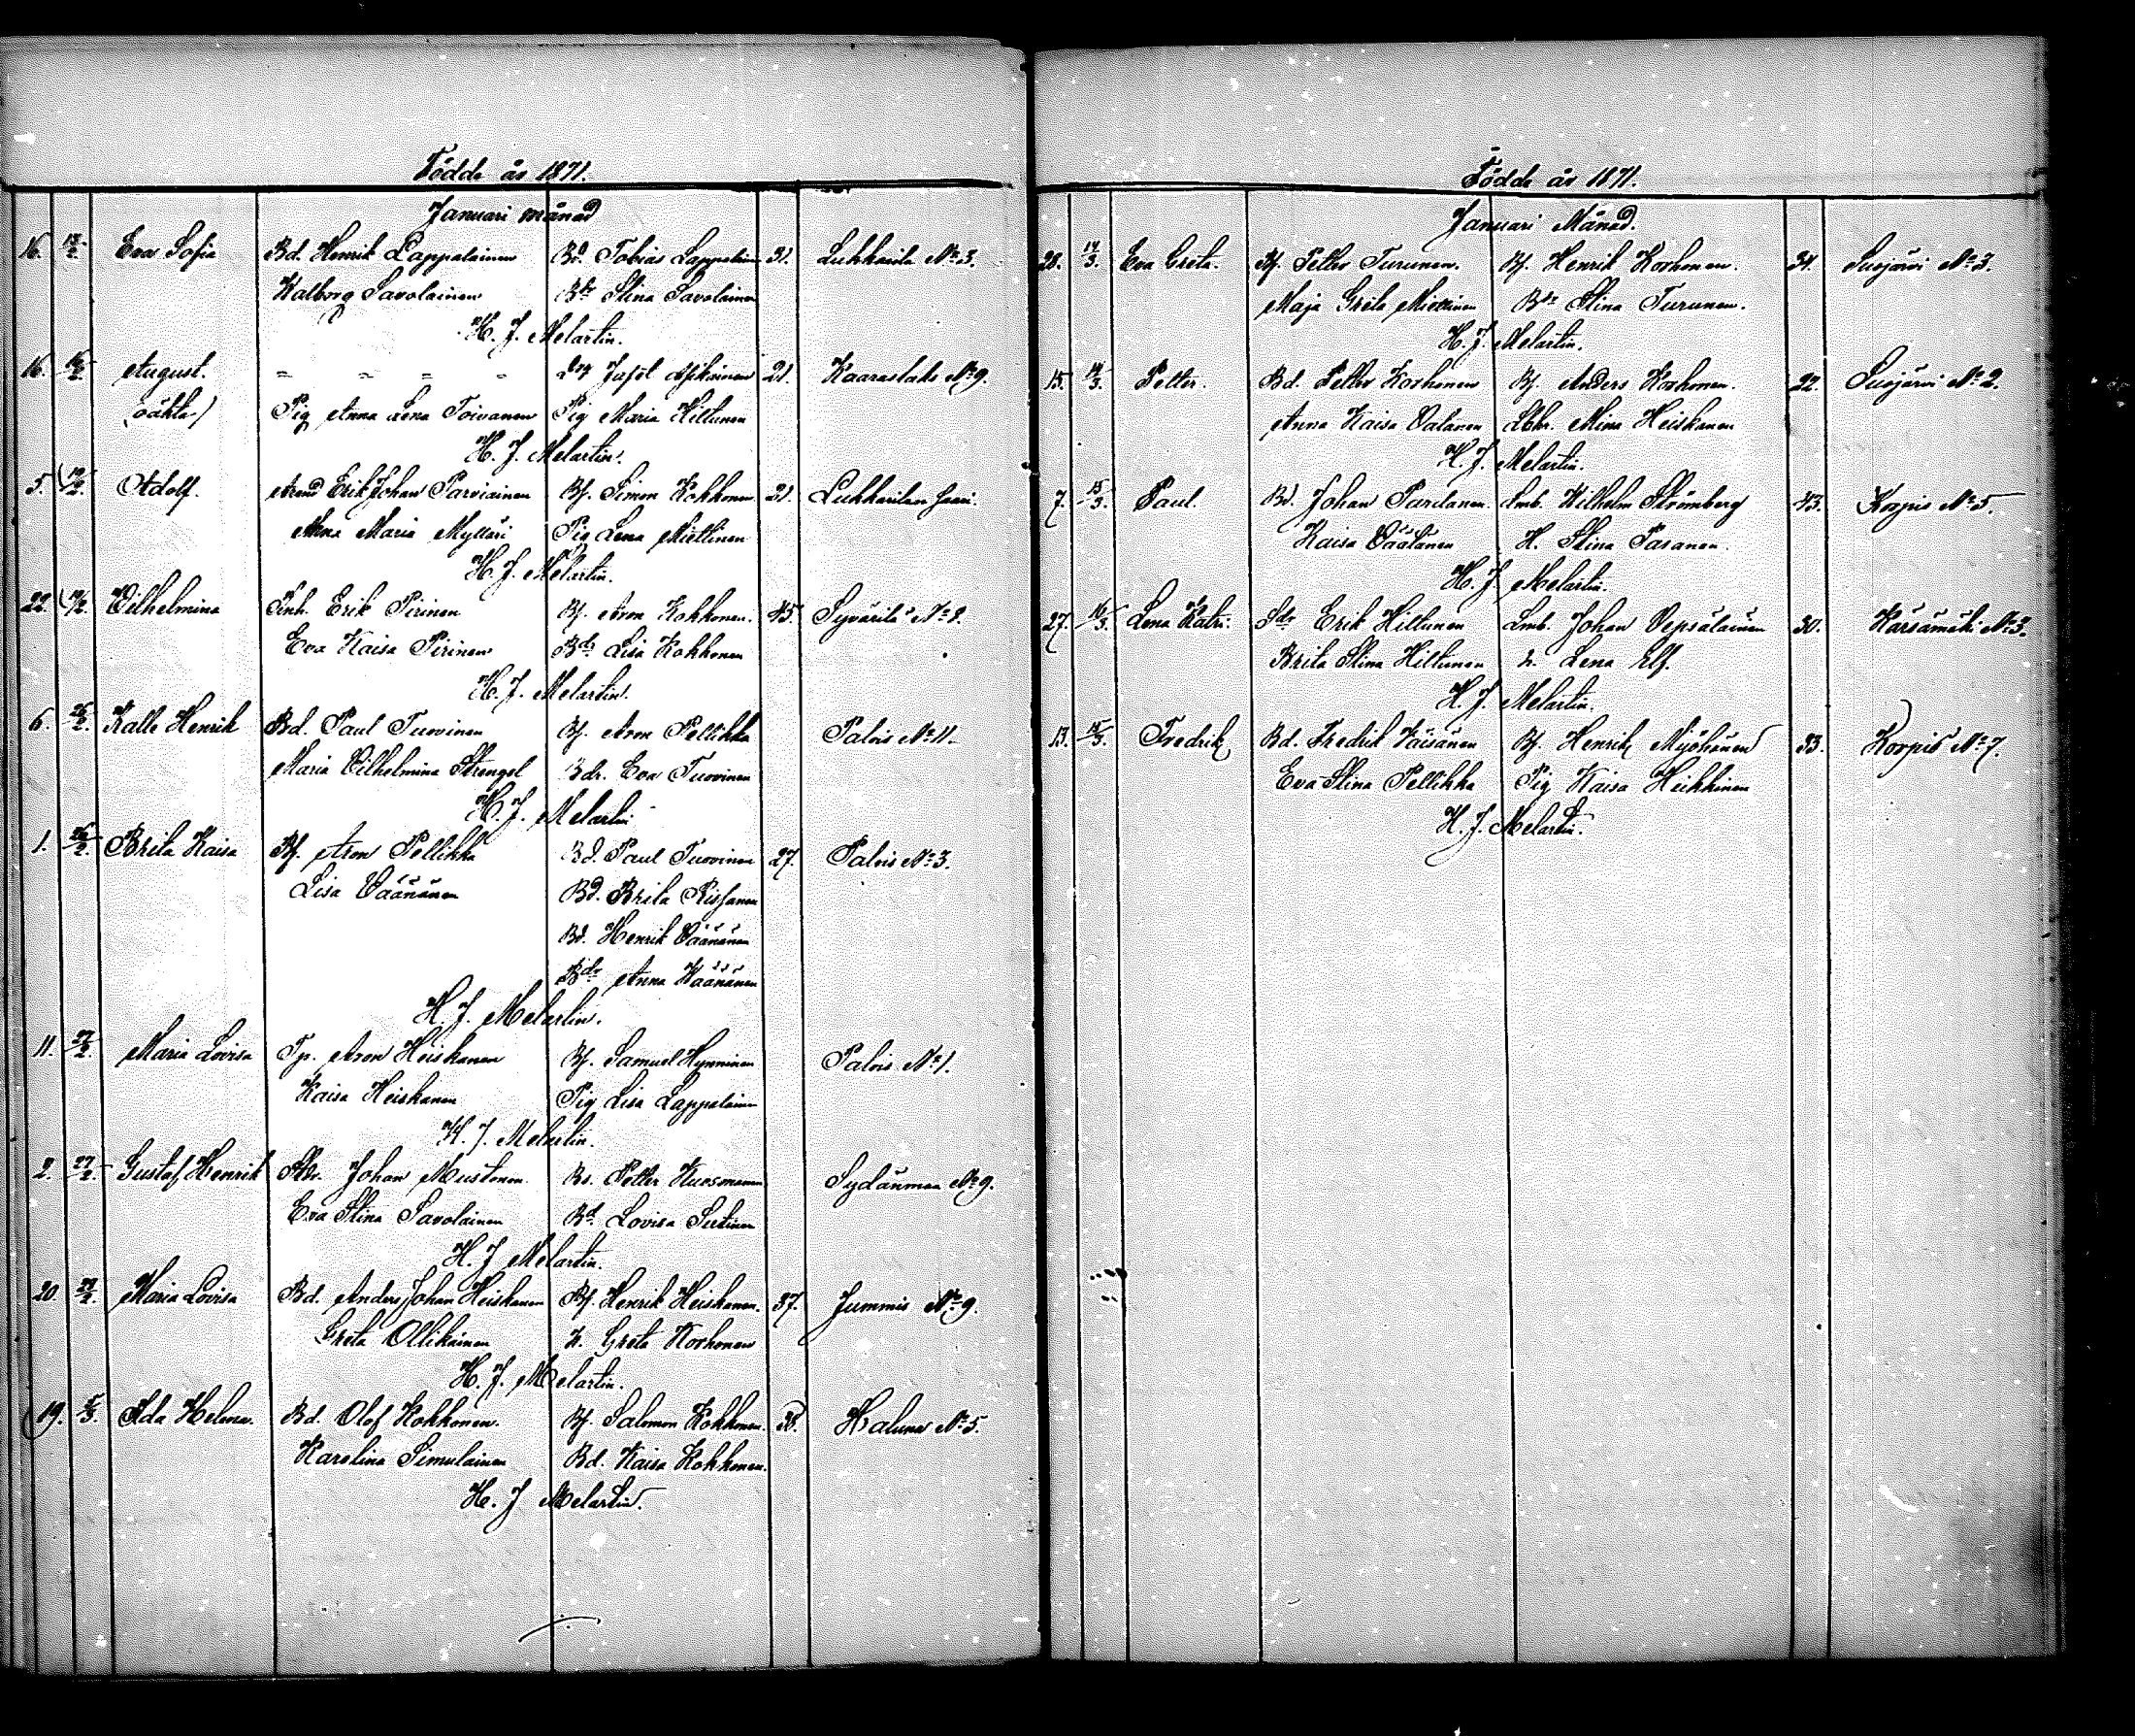 Födde år 1871.
Januari månad
16. 12/2. Eva Sofia Bd. Henrik Lappalainen Bd. Tobias Lappalain 31. Lukkarila No 3.
Walborg Savolainen Bdr Stina Savolainen
H. J. Melartin.
16. August. = = = = Drg 21. Kaaraslaks No 9.
(oäkta) Pig Anna Lena Toivanen Pig Maria Hiltunen
H. J. Melartin.
5. Adolf. Arend Erik Johan Parviainen Bf. Simon Kokkonen 21. Lukkarilan Saari.
Anna Maria Mylläri Pig Lena Miettinen
H. J. Melartin.
22. Wilhelmina Inh. Erik Pirinen Bf. Aron Kokkonen. 45. Syvärilä No 8.
Eva Kaisa Pirinen Bdr Lisa Kokkonen
H. J. Melartin.
6. 26/2. Kalle Henrik Bd. Paul Tuovinen Bf. Aron Pellikka Palois No 11.
Maria Wilhelmina Strengel Bdr. Eva Tuovinen
H. J. Melartin
1. 26/2. Brita Kaisa Bf. Aron Pellikka Bd. Paul Tuovinen 27. Palois No 3.
Lisa Väänänen Bd. Brita Rissanen
Bd. Henrik Väänänen
Bdr Anna Väänänen
H. J. Melartin.
11. 27/2. Maria Lovisa Tp. Aron Heiskanen Bf. Samuel Hynninen Palois No 1.
Kaisa Heiskanen Pig Lisa Lappalainen
H. J. Melartin.
2. 27/2. Gustaf Henrik Sdr. Johan Mustonen Bs. Petter Kuosmanen Sydänmaa No 9.
Eva Stina Savolainen Bd. Lovisa
H. J. Melartin.
20 27/2. Maria Lovisa Bd. Anders Johan Heiskanen Bf. Henrik Heiskanen. 37. Jummis No 9.
Greta Ollikainen h. Greta Korhonen
H. J. Melartin.
19. 5/3. Ida Helena. Bd. Olof Kokkonen. Bf. Salomon Kokkonen. 38. Haluna No 5.
Karolina Simulainen Bd. Kaisa Kokkonen.
H. J. Melartin.
Födde år 1871.
Januari Månad.
28. 14/3. Eva Greta. Bf. Petter Turunen. Bf. Henrik Korhonen. 34. Susjärvi No 3.
Maja Greta Miettinen Bdr Stina Turunen.
H. J. Melartin.
15. 14/3. Petter. Bd. Petter Korhonen Bf. Anders Korhonen. 22. Susjärvi No 2.
Anna Kaisa Valanen Mina Heiskanen
H. J. Melartin.
7. 15/3. Paul. Bd. Johan Partanen. Lmb. Wilhelm Strömberg 43. Korpis No 5.
Kaisa Väätänen H. Stina Pasanen.
H. J. Melartin.
27. 16/3. Lena Katri. Sdr Erik Hiltunen Lmb. Johan Vepsäläinen 30. Kärsämäki No 3.
Brita Stina Hiltunen h. Lena Elf.
H. J. Melartin.
13. 15/3. Fredrik Bd. Fredrik Väisänen Bf. Henrik Myöhänen 33. Korpis No 7.
Eva Stina Pellikka Pig Kaisa Heikkinen
H. J. Melartin.